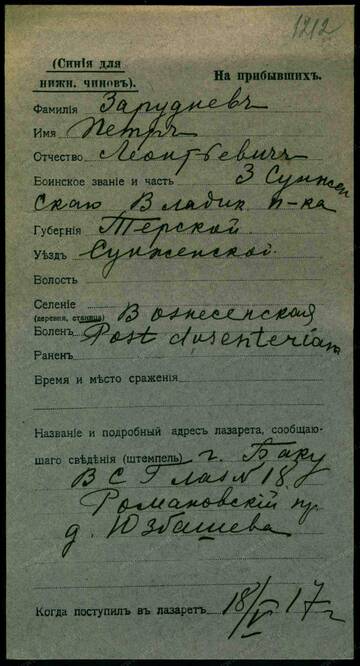 1212
(Синія для
нижн. чиновъ).
На прибывшихъ.
Фамилія Зарудневъ
Имя Петръ
Отчество Леонтьевичъ
Воинское званіе и часть 3 Сунжен
скаго Владик п-ка
Губернія Терской
Уѣздъ Сунженской
Волость
Селеніе
(деревня, станица) Вознесенская
Боленъ Post dusenteriam
Раненъ
Время и мѣсто сраженія
Названіе и подробный адресъ лазарета, сообщаю-
щаго свѣдѣнія (штемпель) г. Баку
В С Г Лаз № 18
Романовскій пр.
д. Юзбашева
Когда поступилъ въ лазаретъ 18/V 17 г